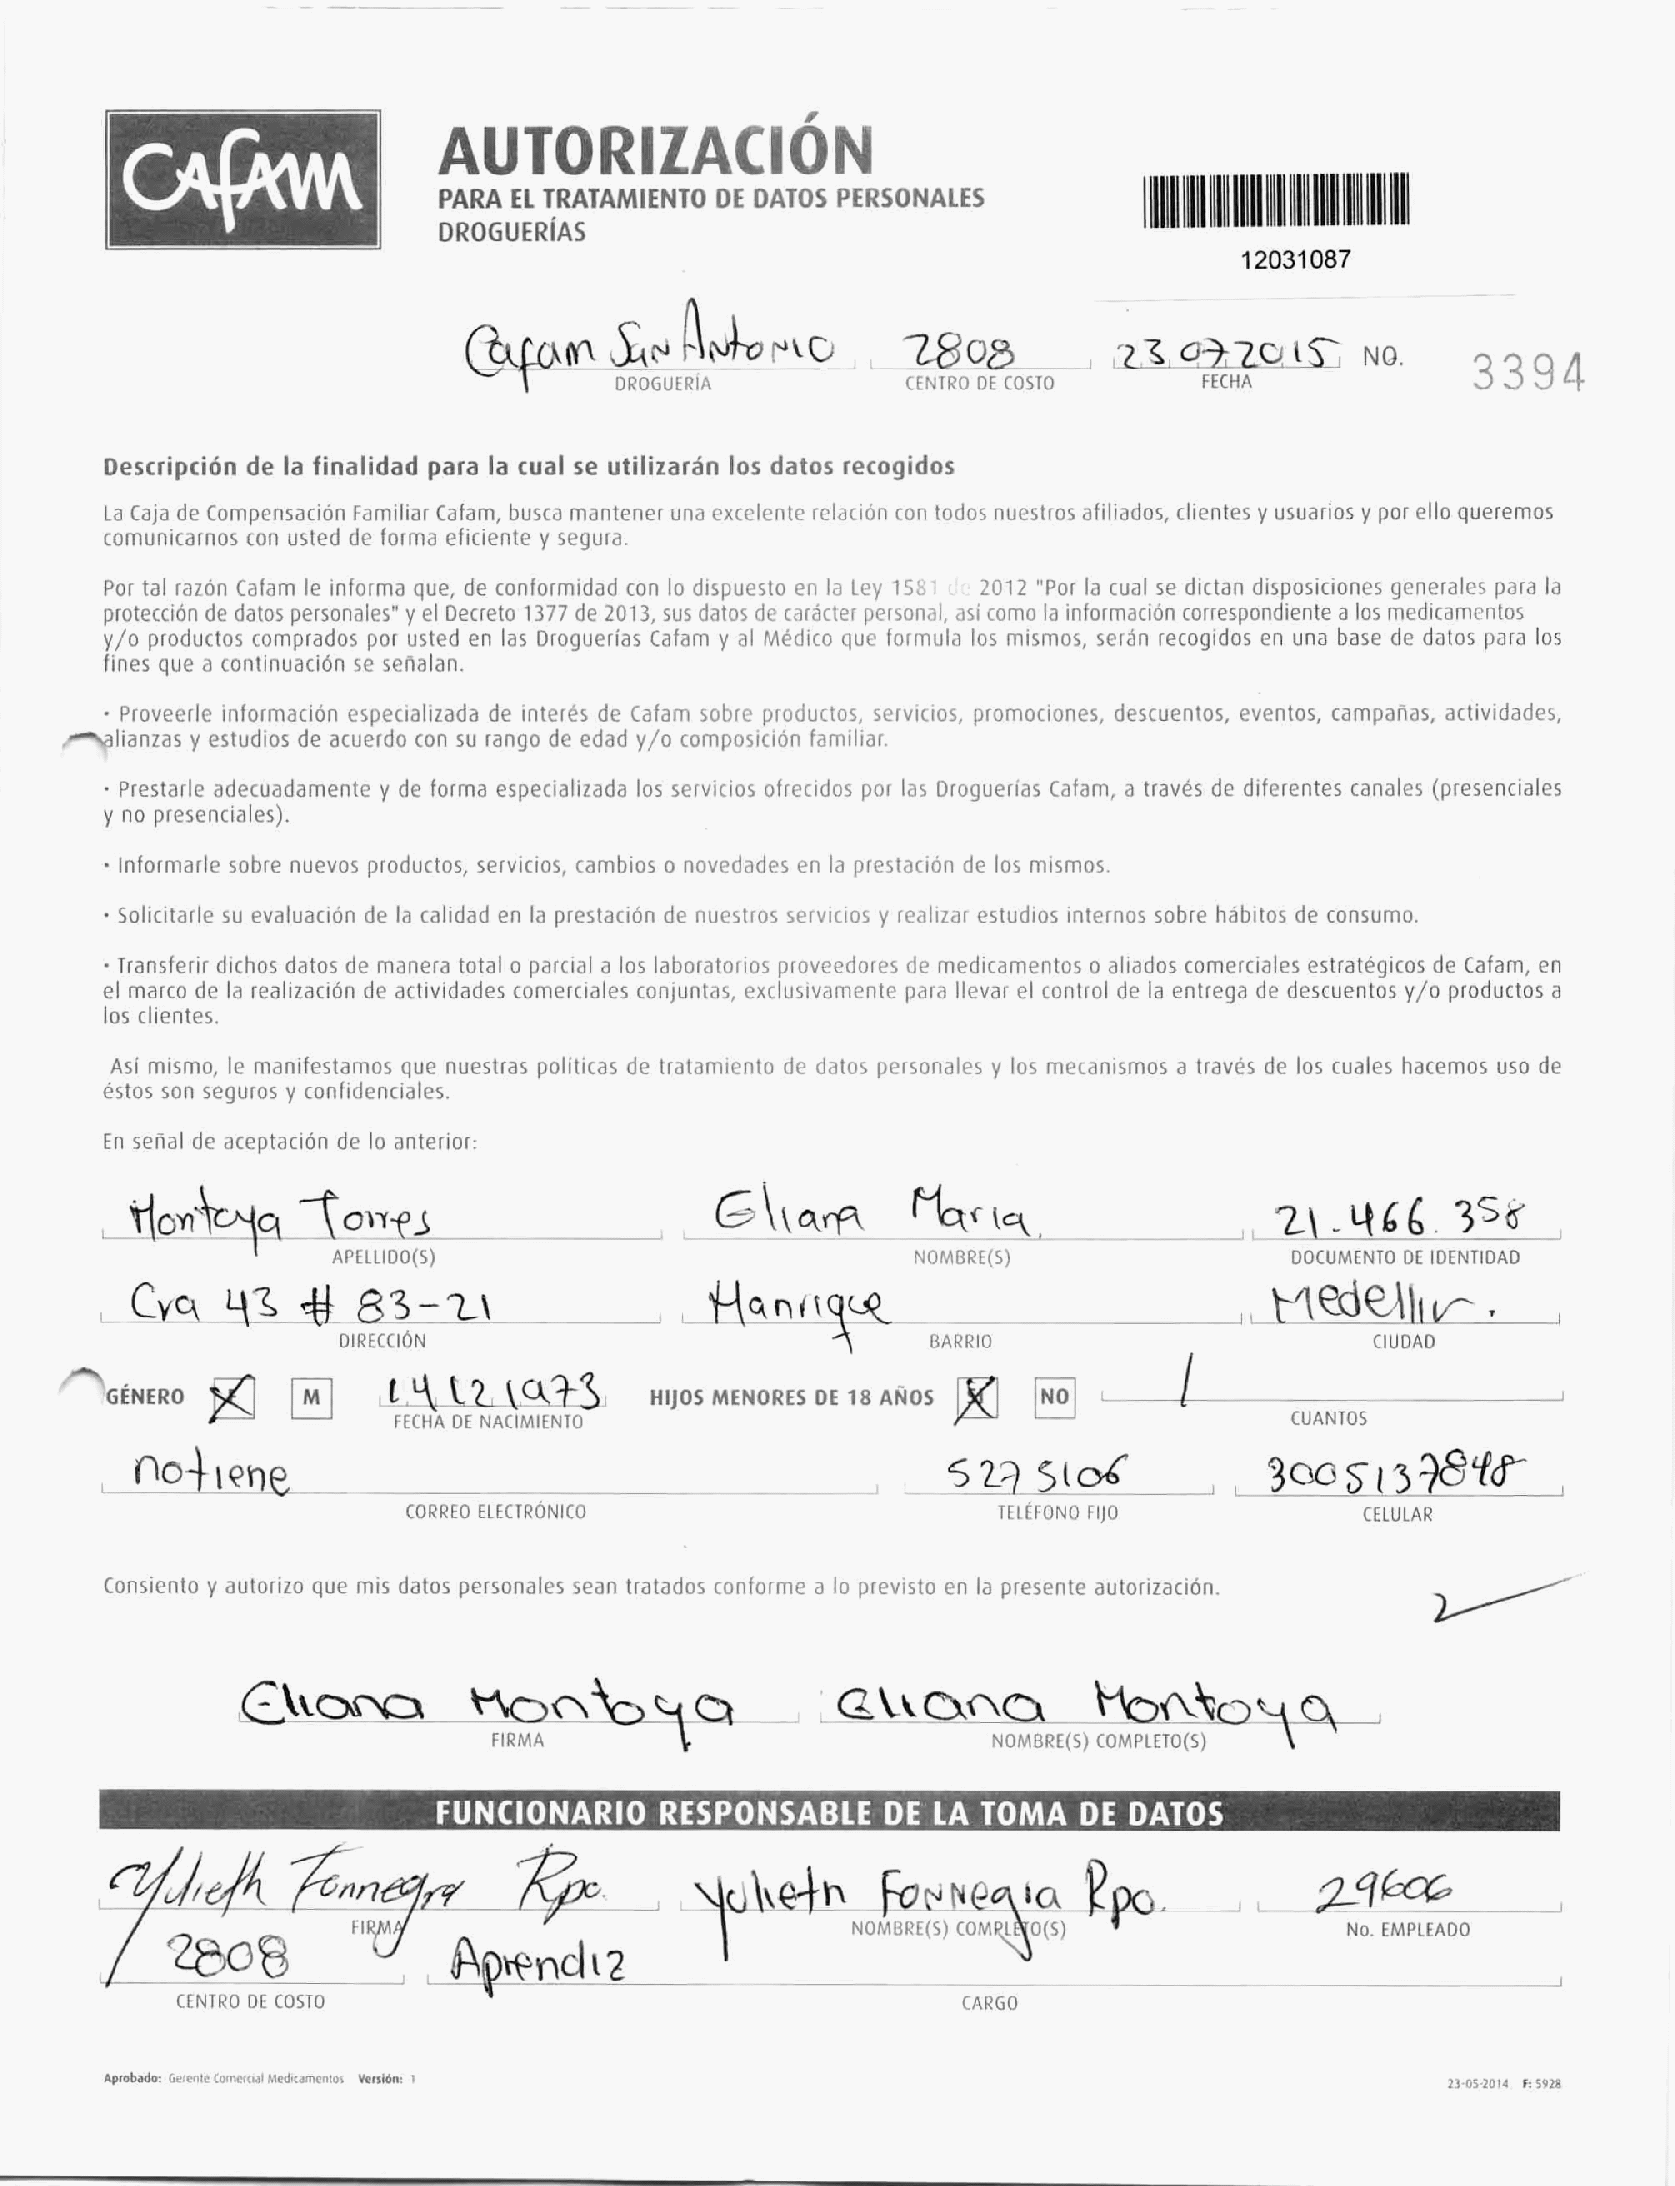 CAFAM
AUTORIZACIÓN
PARA EL TRATAMIENTO DE DATOS PERSONALES
DROGUERÍAS
12031087
Cafam San Antonio 2808 23 07 2015 NO. 3394
DROGUERÍA CENTRO DE COSTO FECHA
Descripción de la finalidad para la cual se utilizarán los datos recogidos
La Caja de Compensación Familiar Cafam, busca mantener una excelente relación con todos nuestros afiliados, clientes y usuarios y por ello queremos
comunicarnos con usted de forma eficiente y segura.
Por tal razón Cafam le informa que, de conformidad con lo dispuesto en la Ley 1581 de 2012 "Por la cual se dictan disposiciones generales para la
protección de datos personales" y el Decreto 1377 de 2013, sus datos de carácter personal, así como la información correspondiente a los medicamentos
y/o productos comprados por usted en las Droguerías Cafam y al Médico que formula los mismos, serán recogidos en una base de datos para los
fines que a continuación se señalan.
· Proveerle información especializada de interés de Cafam sobre productos, servicios, promociones, descuentos, eventos, campañas, actividades,
alianzas y estudios de acuerdo con su rango de edad y/o composición familiar.
· Prestarle adecuadamente y de forma especializada los servicios ofrecidos por las Droguerías Cafam, a través de diferentes canales (presenciales
y no presenciales).
· Informarle sobre nuevos productos, servicios, cambios o novedades en la prestación de los mismos.
· Solicitarle su evaluación de la calidad en la prestación de nuestros servicios y realizar estudios internos sobre hábitos de consumo.
· Transferir dichos datos de manera total o parcial a los laboratorios proveedores de medicamentos o aliados comerciales estratégicos de Cafam, en
el marco de la realización de actividades comerciales conjuntas, exclusivamente para llevar el control de la entrega de descuentos y/o productos a
los clientes.
Así mismo, le manifestamos que nuestras políticas de tratamiento de datos personales y los mecanismos a través de los cuales hacemos uso de
éstos son seguros y confidenciales.
En señal de aceptación de lo anterior:
Montoya Torres Eliana Maria 21.466.358
APELLIDO(S) NOMBRE(S) DOCUMENTO DE IDENTIDAD
Cra 43 # 83-21 Manrique Medellin.
DIRECCIÓN BARRIO CIUDAD
GÉNERO X M 14 12 1973 HIJOS MENORES DE 18 AÑOS X NO 1
FECHA DE NACIMIENTO CUANTOS
no tiene 5275106 3005137848
CORREO ELECTRÓNICO TELÉFONO FIJO CELULAR
Consiento y autorizo que mis datos personales sean tratados conforme a lo previsto en la presente autorización.
Eliana Montoya Eliana Montoya
FIRMA NOMBRE(S) COMPLETO(S)
FUNCIONARIO RESPONSABLE DE LA TOMA DE DATOS
Yulieth Fonnegra Rpo. Yulieth Fonnegra Rpo. 29606
FIRMA NOMBRE(S) COMPLETO(S) No. EMPLEADO
2808 Aprendiz
CENTRO DE COSTO CARGO
Aprobado: Gerente Comercial Medicamentos Versión: 1
23-05-2014 F: 5928